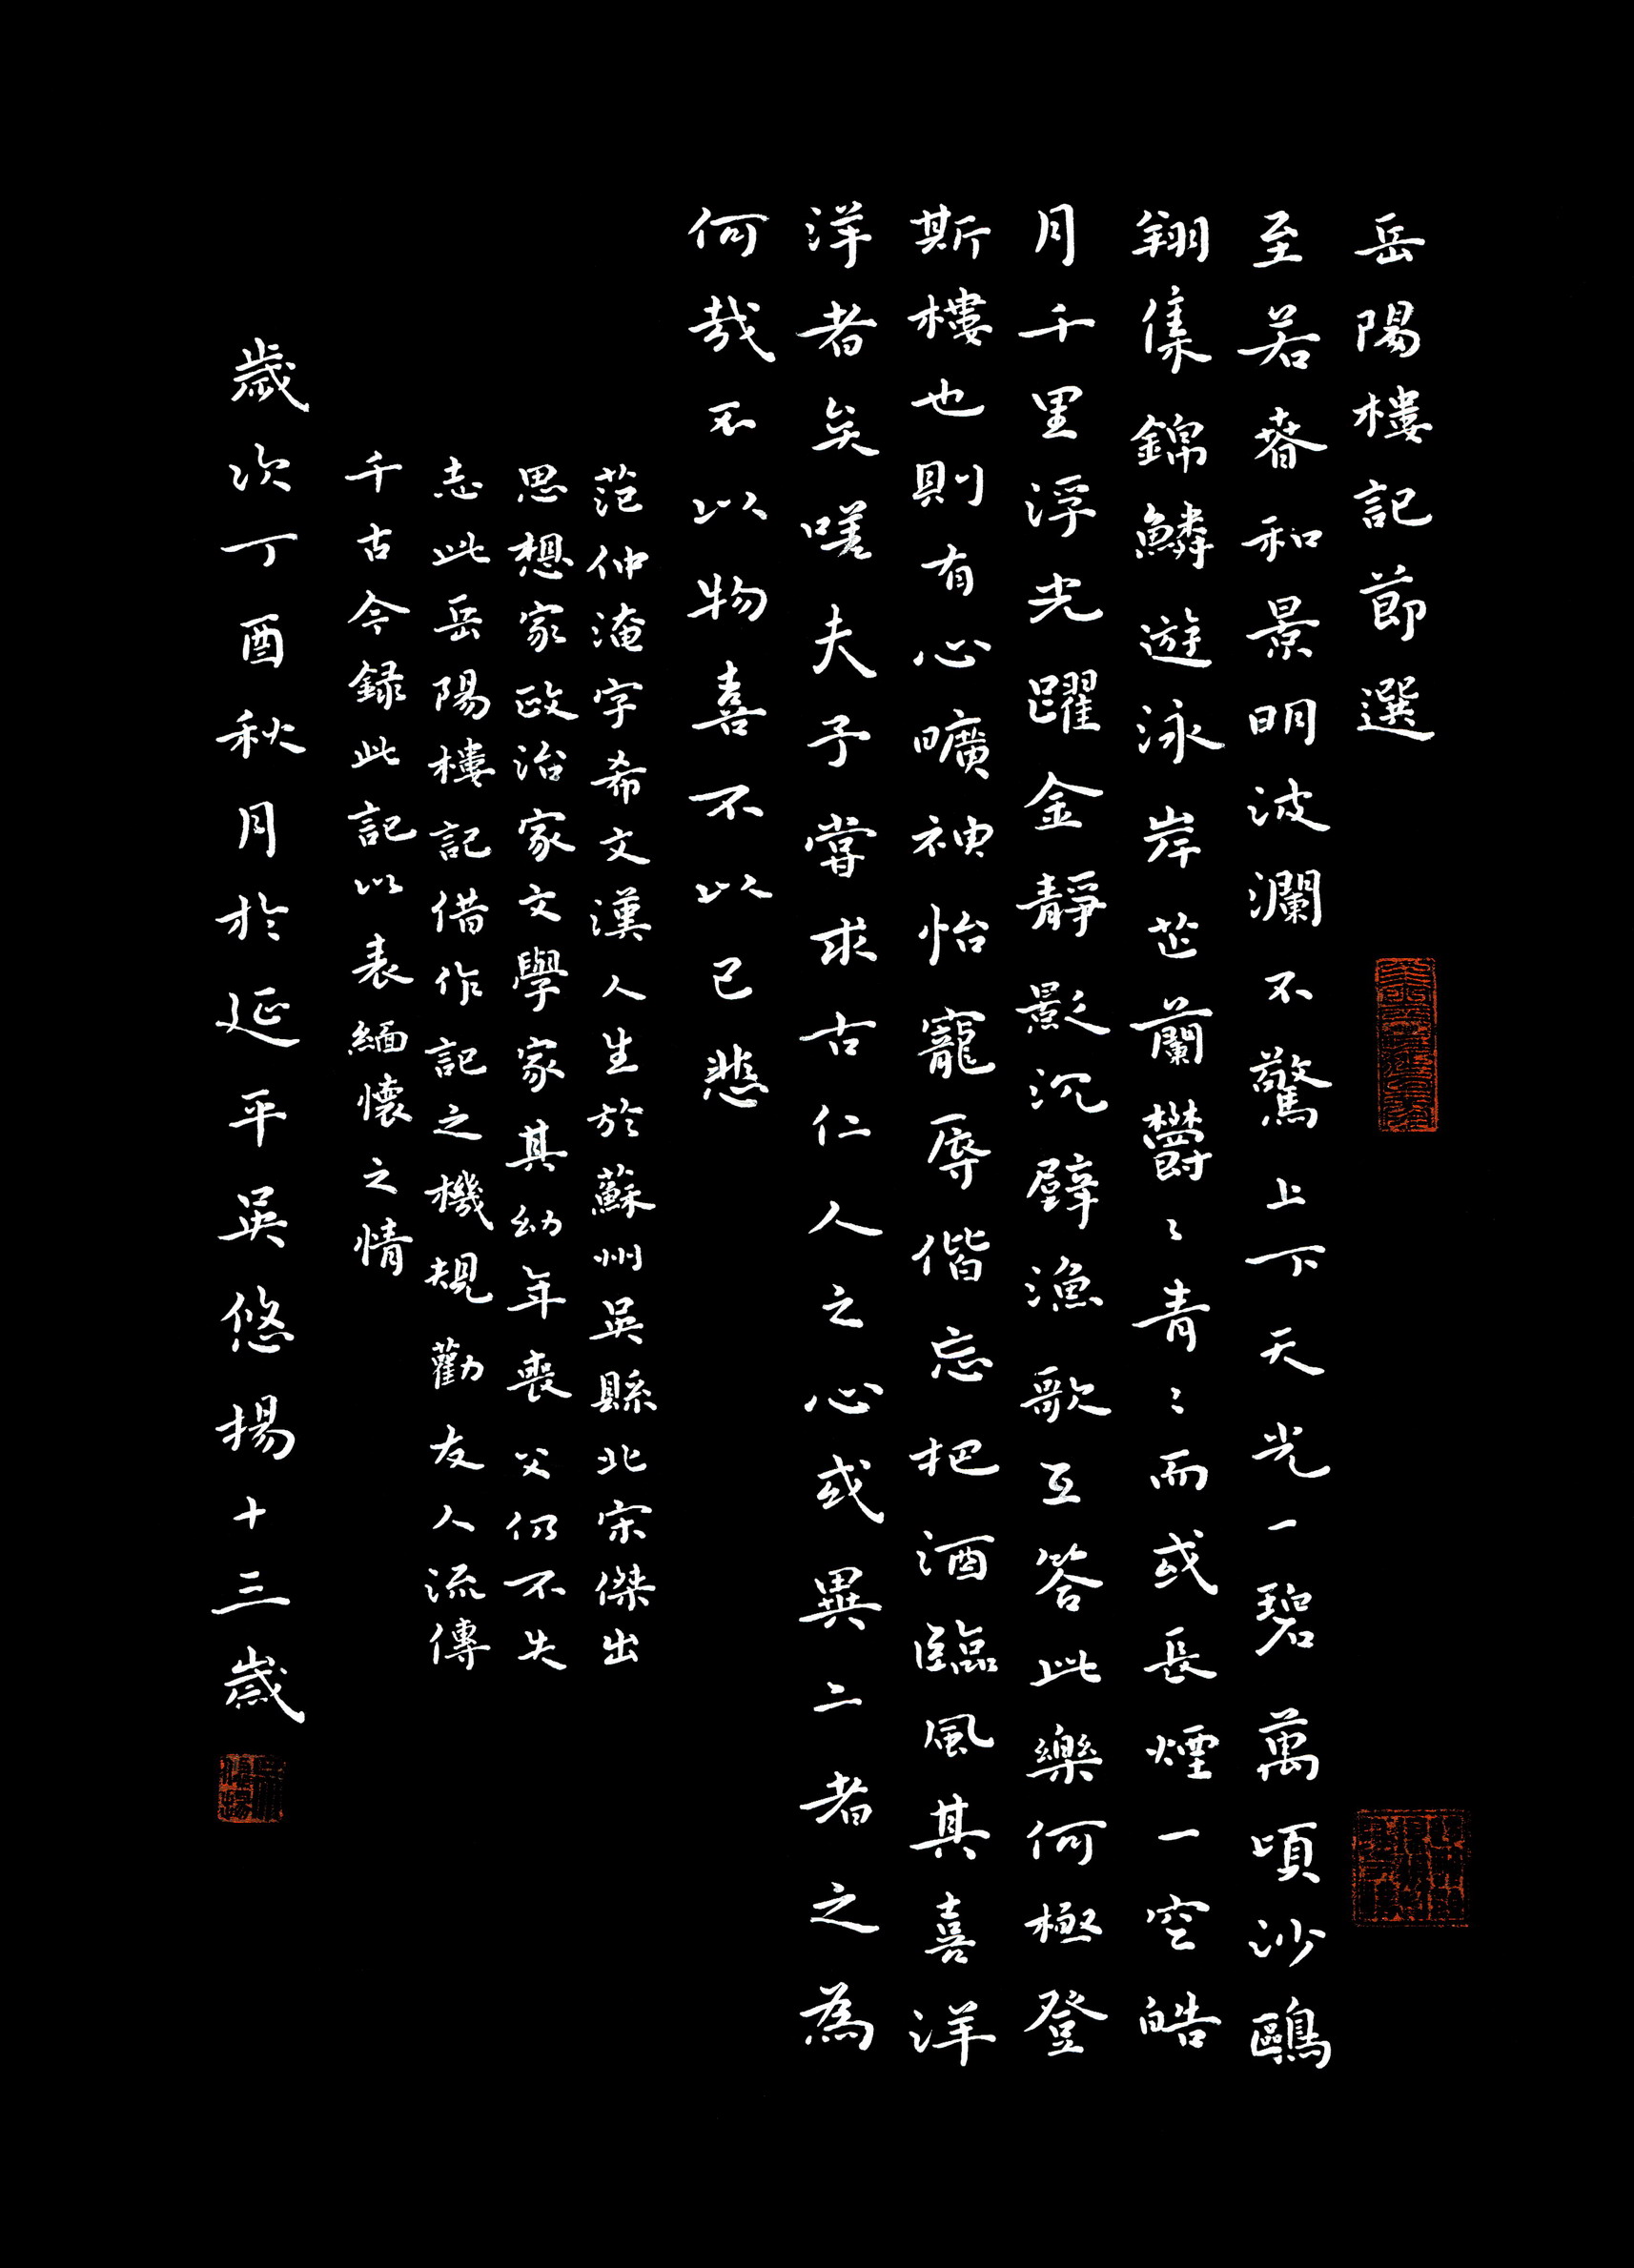 岳陽樓記節選
至若春和景明波瀾不驚上下天光一碧萬頃沙鷗
翔集錦鱗遊泳岸芷蘭欝〻青〻而或長煙一空皓
月千里浮光躍金靜影沉璧漁歌互答此樂何極登
斯樓也則有心曠神怡寵辱偕忘把酒臨風其喜洋
洋者矣嗟夫予嘗求古仁人之心或異二者之為
何哉不以物喜不以己悲
范仲淹字希文漢人生於蘇州吳縣北宋傑出
思想家政治家文學家其幼年喪父仍不失
志此岳陽樓記借作記之機規勸友人流傳
千古今録此記以表緬懷之情
歲次丁酉秋月於延平吳悠揚十三歲